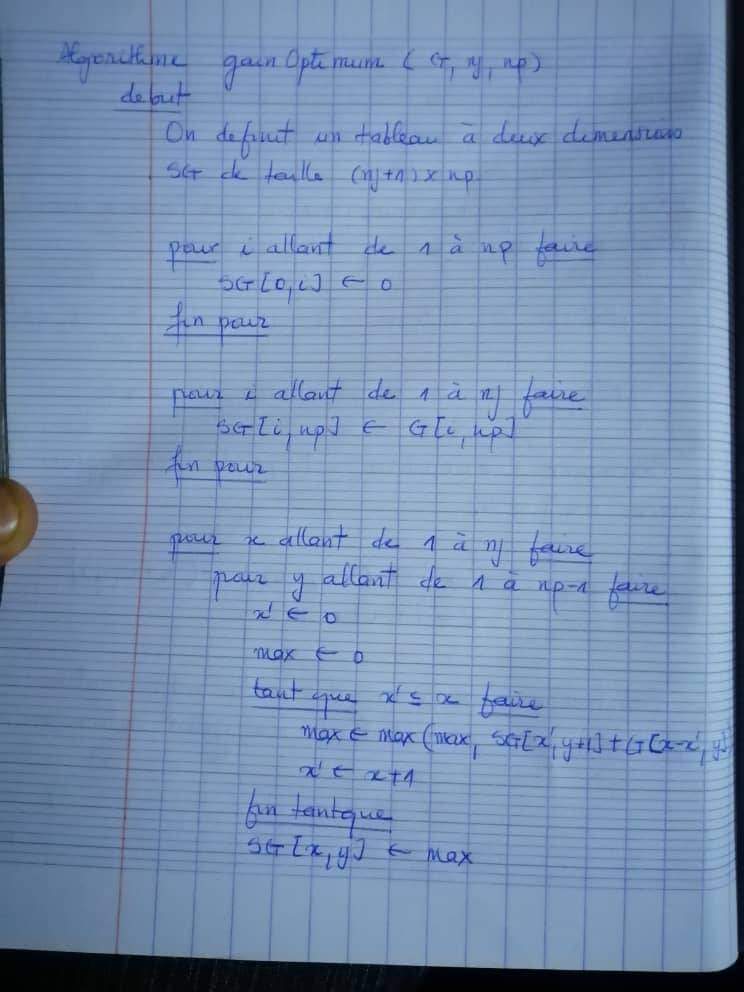 Algorithme gainOptimum (G, nj, np)
debut
On definit un tableau à deux dimensions
SG de taille (nj+1) x np
pour i allant de 1 à np faire
SG[0,i] ← 0
fin pour
pour i allant de 1 à nj faire
SG[i,np] ← G[i,np]
fin pour
pour x allant de 1 à nj faire
pour y allant de 1 à np-1 faire
x' ← 0
max ← 0
tant que x' ≤ x faire
max ← max(max, SG[x', y+1] + G[x-x', y]
x' ← x+1
fin tantque
SG[x,y] ← max